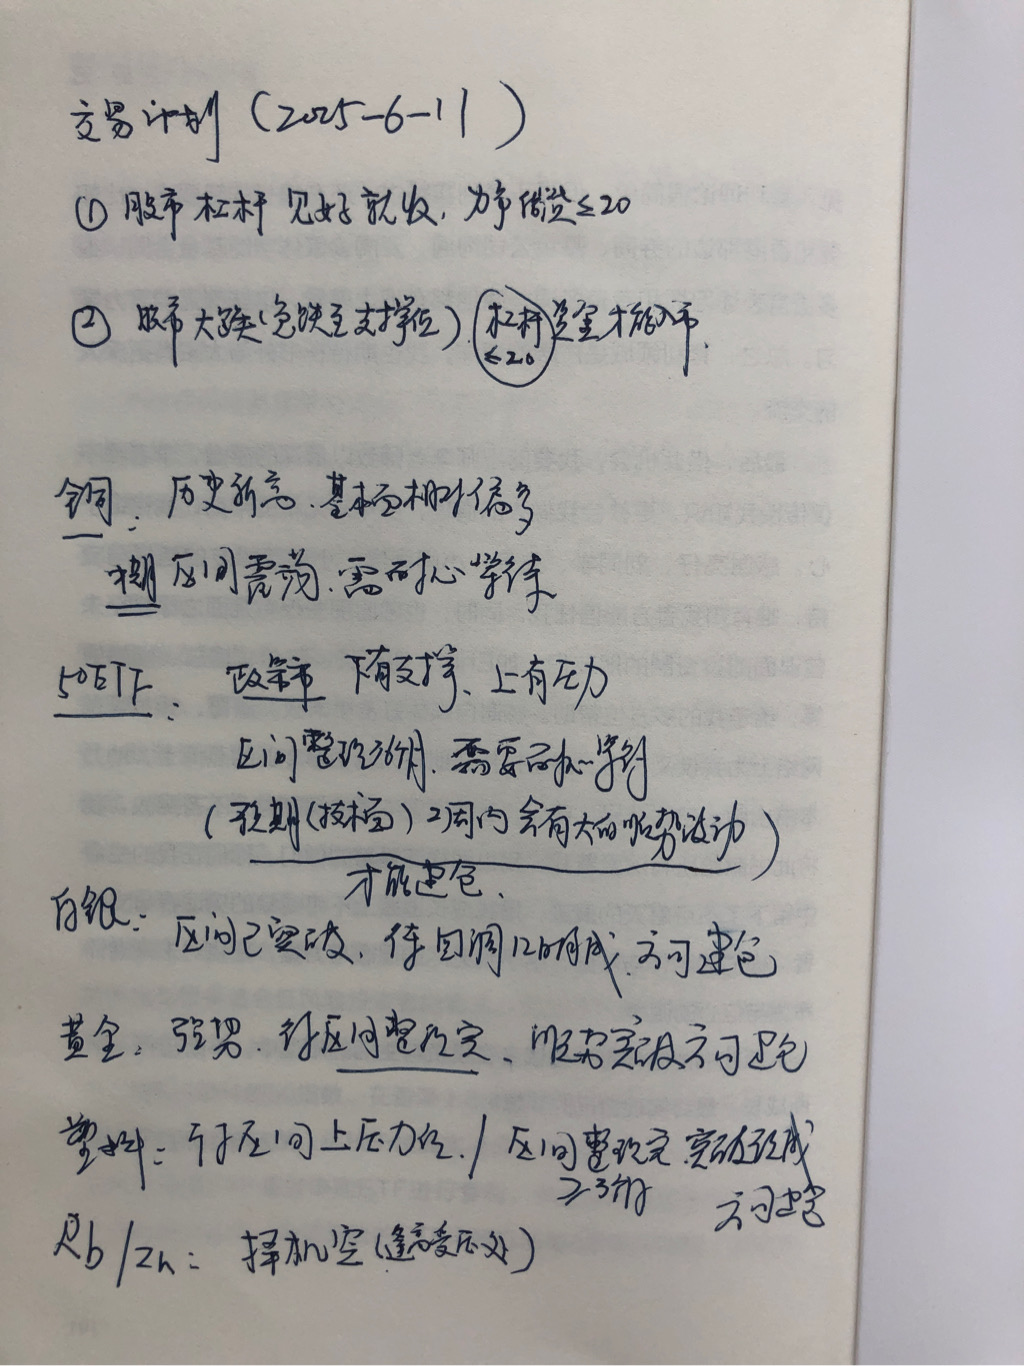 交易计划（2025-6-11）
① 股市杠杆见好就收，力争借贷≤20
② 股市大跌（急跌至支撑位）、杠杆资金才能入市、
≤20
铜：历史新高、基本面相对偏多
区间震荡、需耐心等待
50ETF：政策市 下有支撑、上有压力
区间整理3个月、需要耐心等待
（预期（技术面）2周内会有大的顺势波动）
才能建仓、
白银：区间已突破，待回调12日完成、方可建仓
黄金：强势、待区间整理完、顺势突破方可建仓
塑料：于区间上压力位 / 区间整理完 突破形成
≥3个月 方可建仓
Rb/Zn：择机空（逢高受压处）